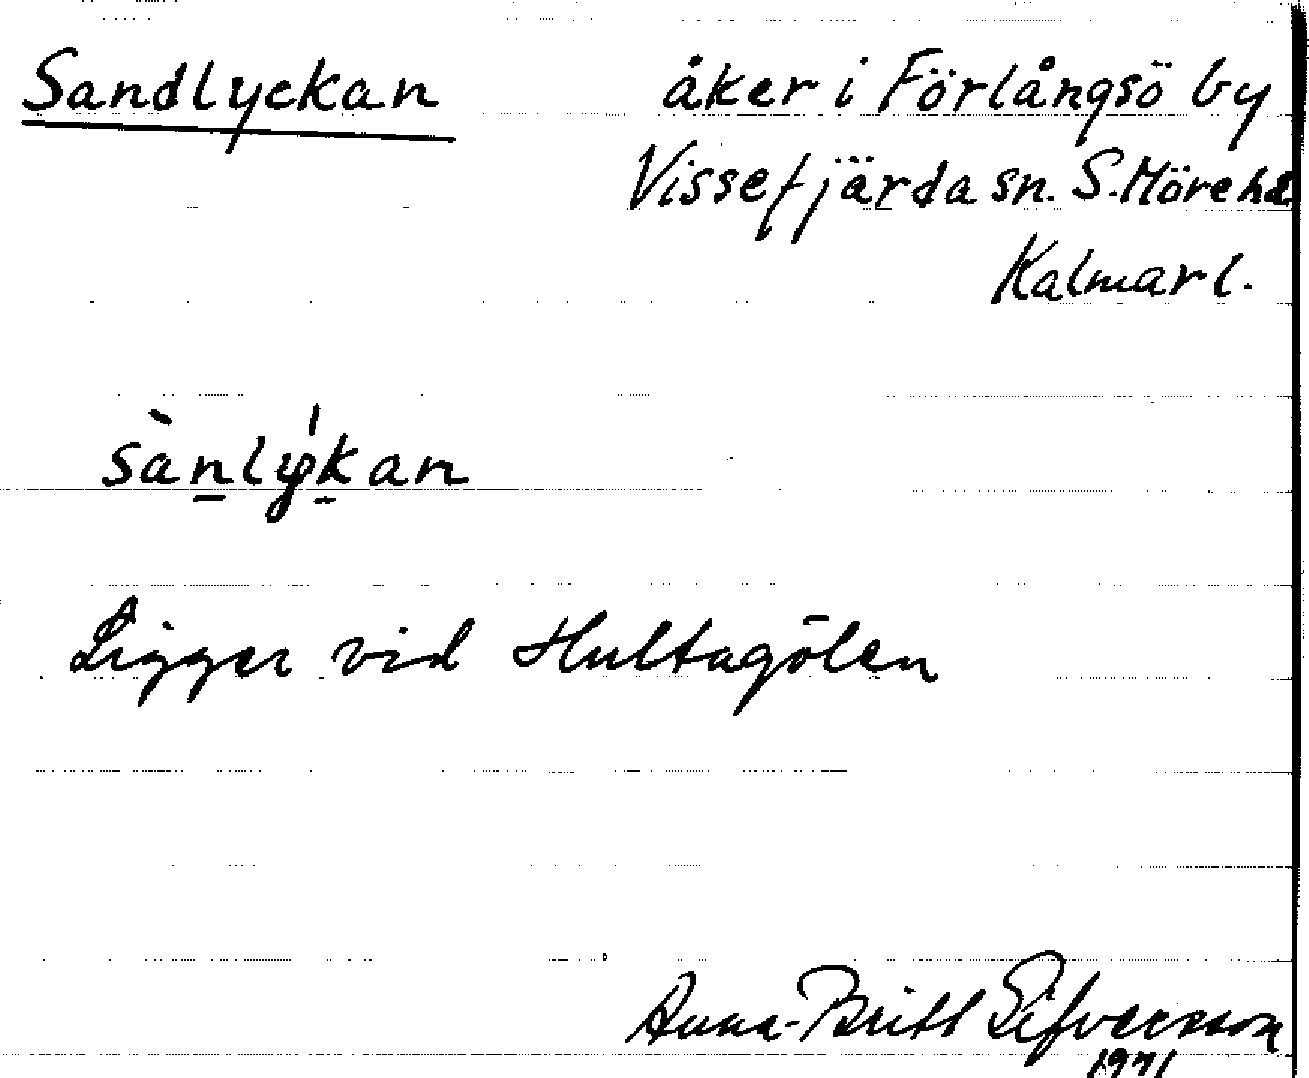 Sandlyckan åker i Förlångsö by
Vissefjärda sn. S. Möre hd
Kalmar l.
sànlýkan
Ligger vid Hultagölen
Anna-Britt Sifversson
1971